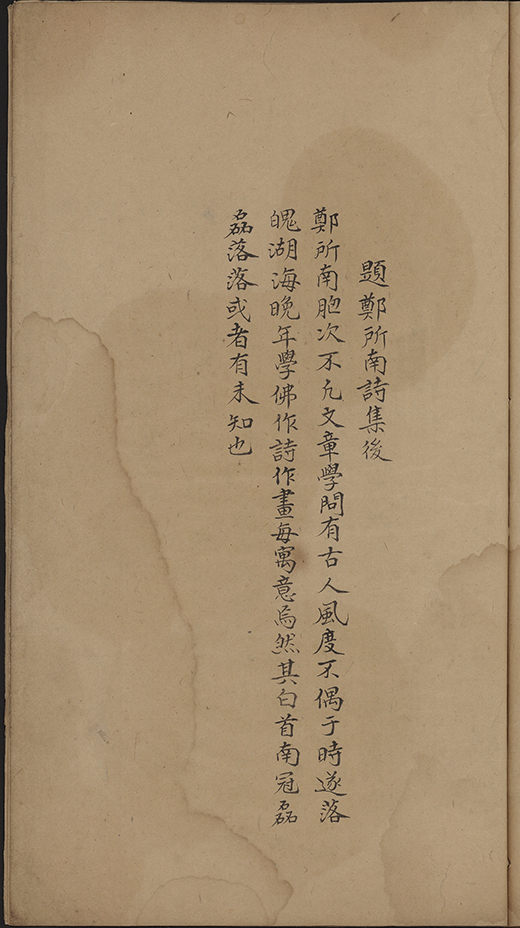 題鄭所南詩集後
鄭所南胷次不凡文章學問有古人風度不偶于時遂落
魄湖海晚年學佛作詩作畫每寓意焉然其白首南冠磊
磊落落或者有未知也